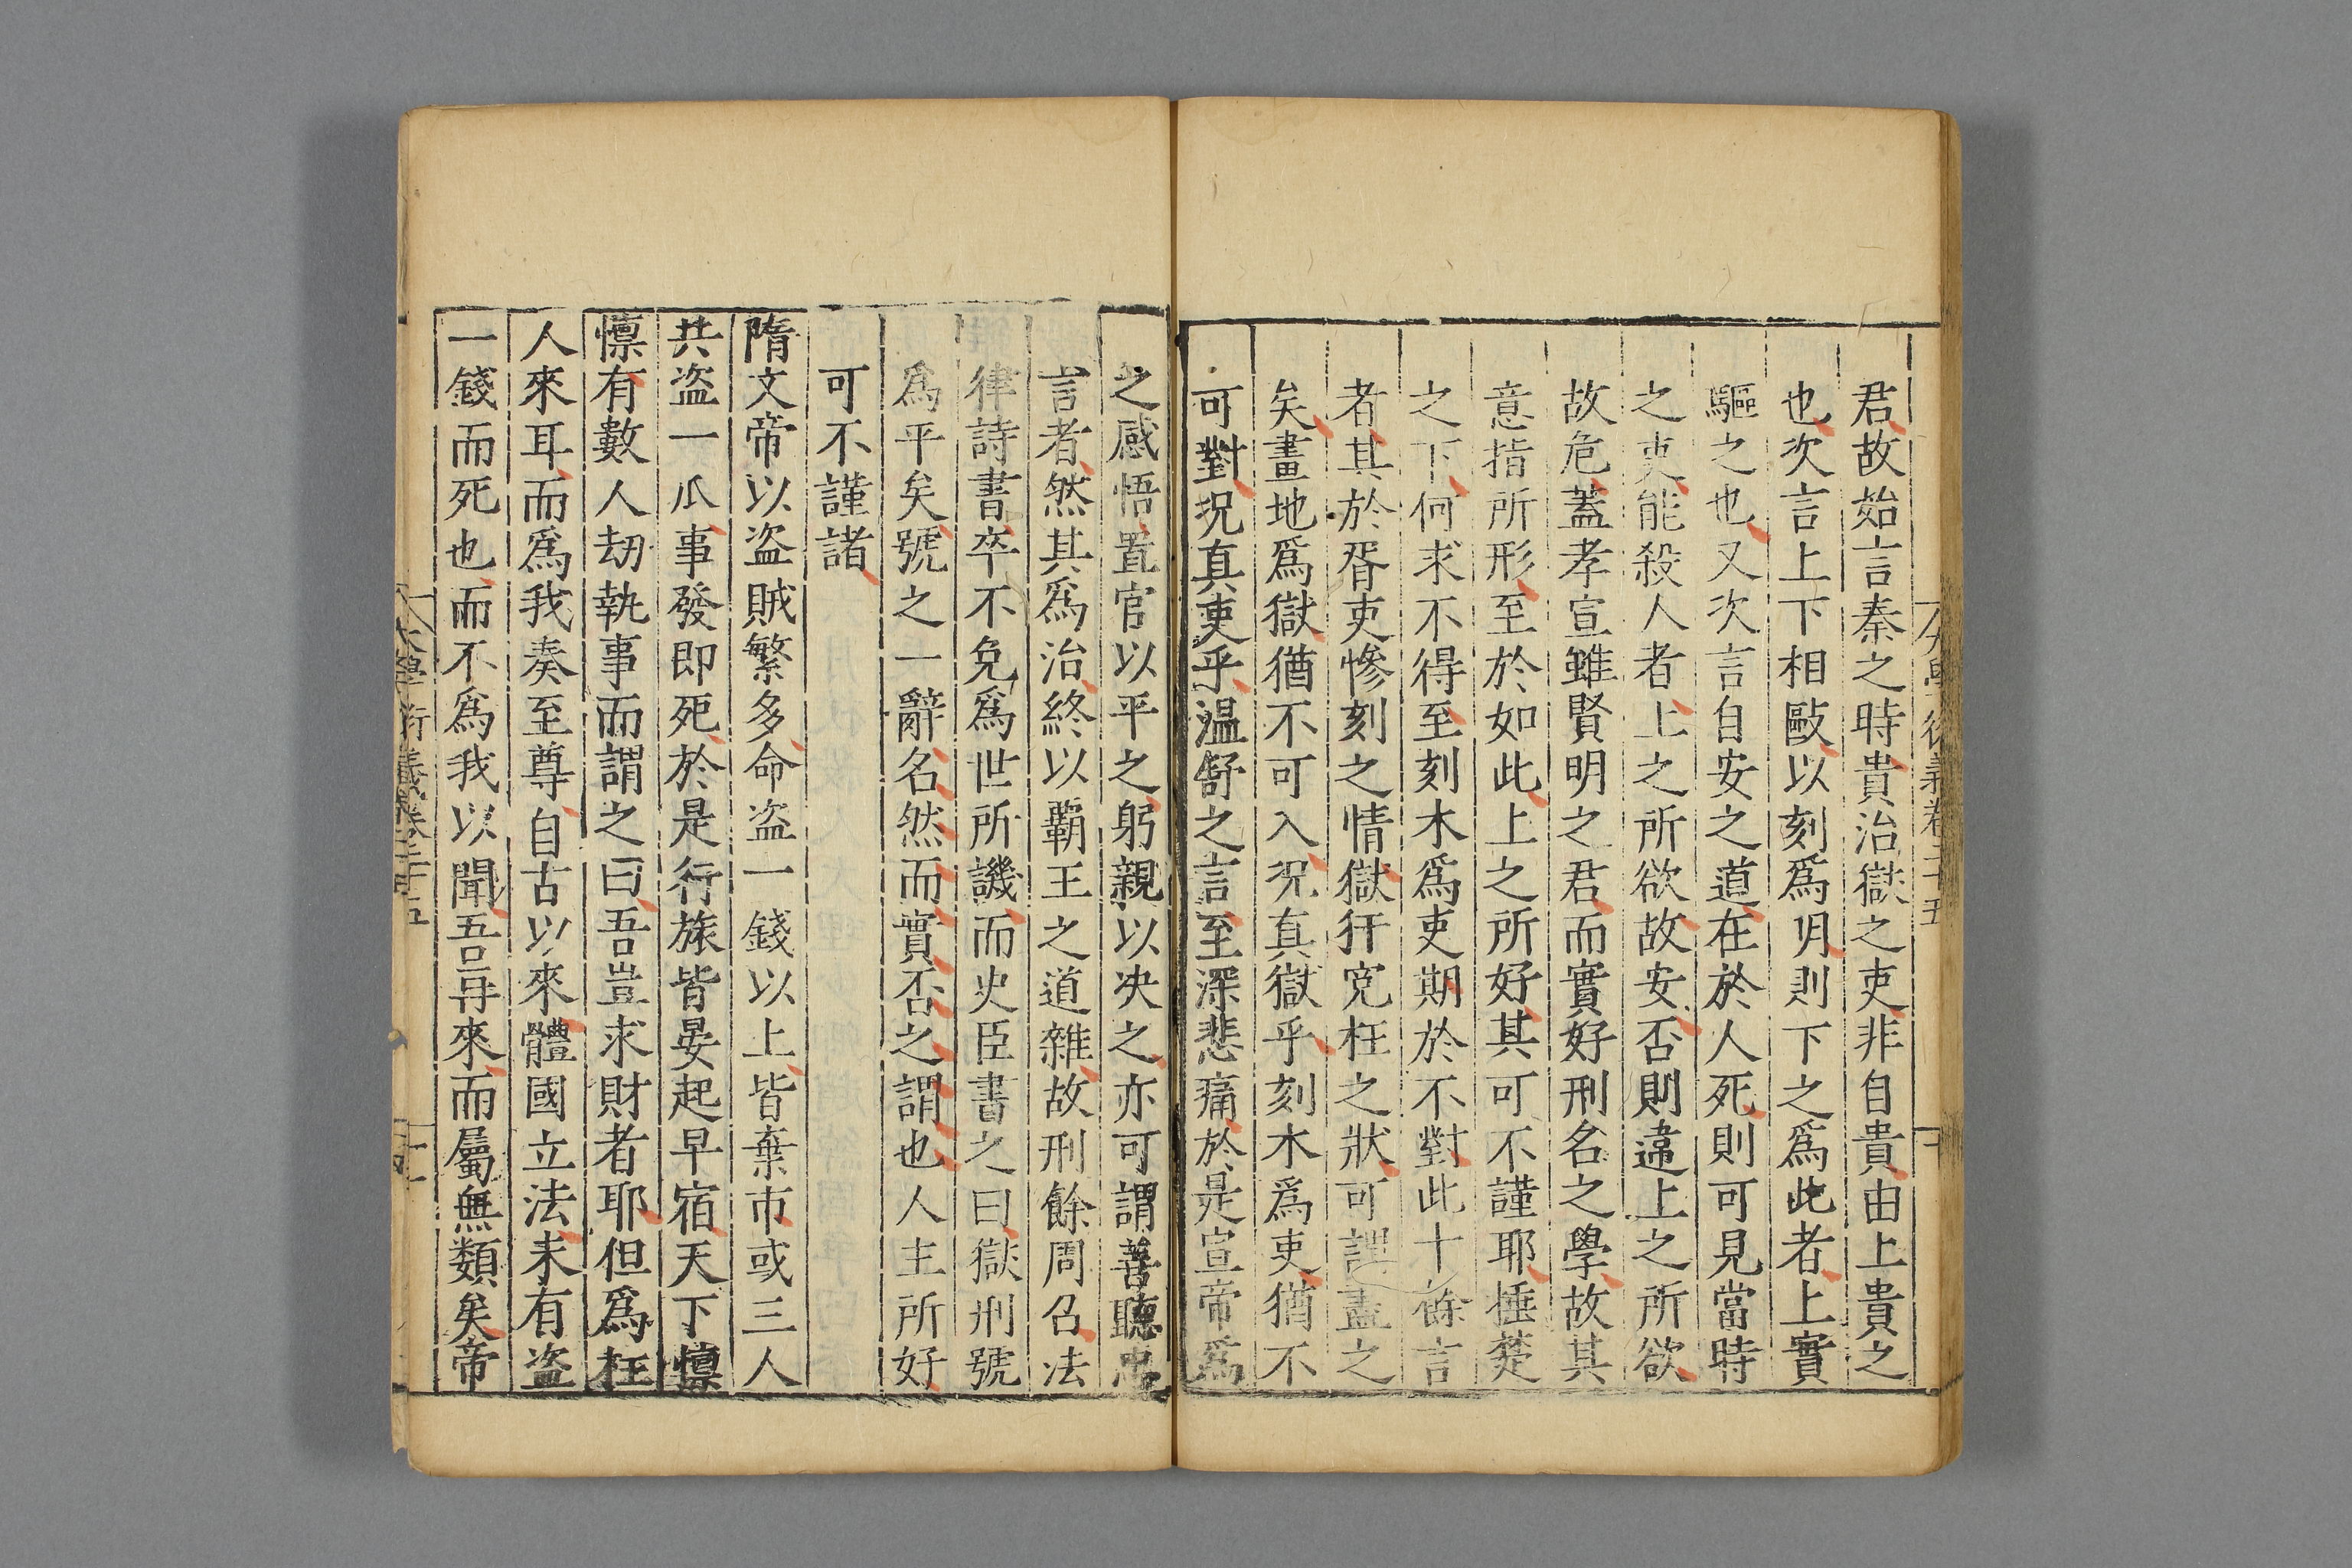 君故始言秦之時貴治獄之吏非自貴由上貴之
也次言上下相敺以刻爲明則下之爲此者上實
驅之也又次言自安之道在於人死則可見當時
之吏能殺人者上之所欲故安否則違上之所欲
故危蓋孝宣雖賢明之君而實好刑名之學故其
意指所形至於如此上之所好其可不謹耶捶楚
之下何求不得至刻木爲吏期於不對此十餘言
者其於胥吏慘刻之情獄犴寃枉之狀可謂盡之
矣畫地爲獄猶不可入况真獄乎刻木爲吏猶不
可對况真吏乎温舒之言至深悲痛於是宣帝爲
之感悟置官以平之躬親以决之亦可謂善聽忠
言者然其爲治終以覇王之道雜故刑餘周召法
律詩書卒不免爲世所譏而史臣書之曰獄刑號
爲平矣號之一辭名然而實否之謂也人主所好
可不謹諸
隋文帝以盜賊繁多命盜一錢以上皆棄市或三人
共盜一瓜事發即死於是行旅皆晏起早宿天下懔
懔有數人劫執事而謂之曰吾豈求財者耶但爲枉
人來耳而爲我奏至尊自古以來體國立法未有盜
一錢而死也而不爲我以聞吾再來而屬無類矣帝
大學衍義卷二十五